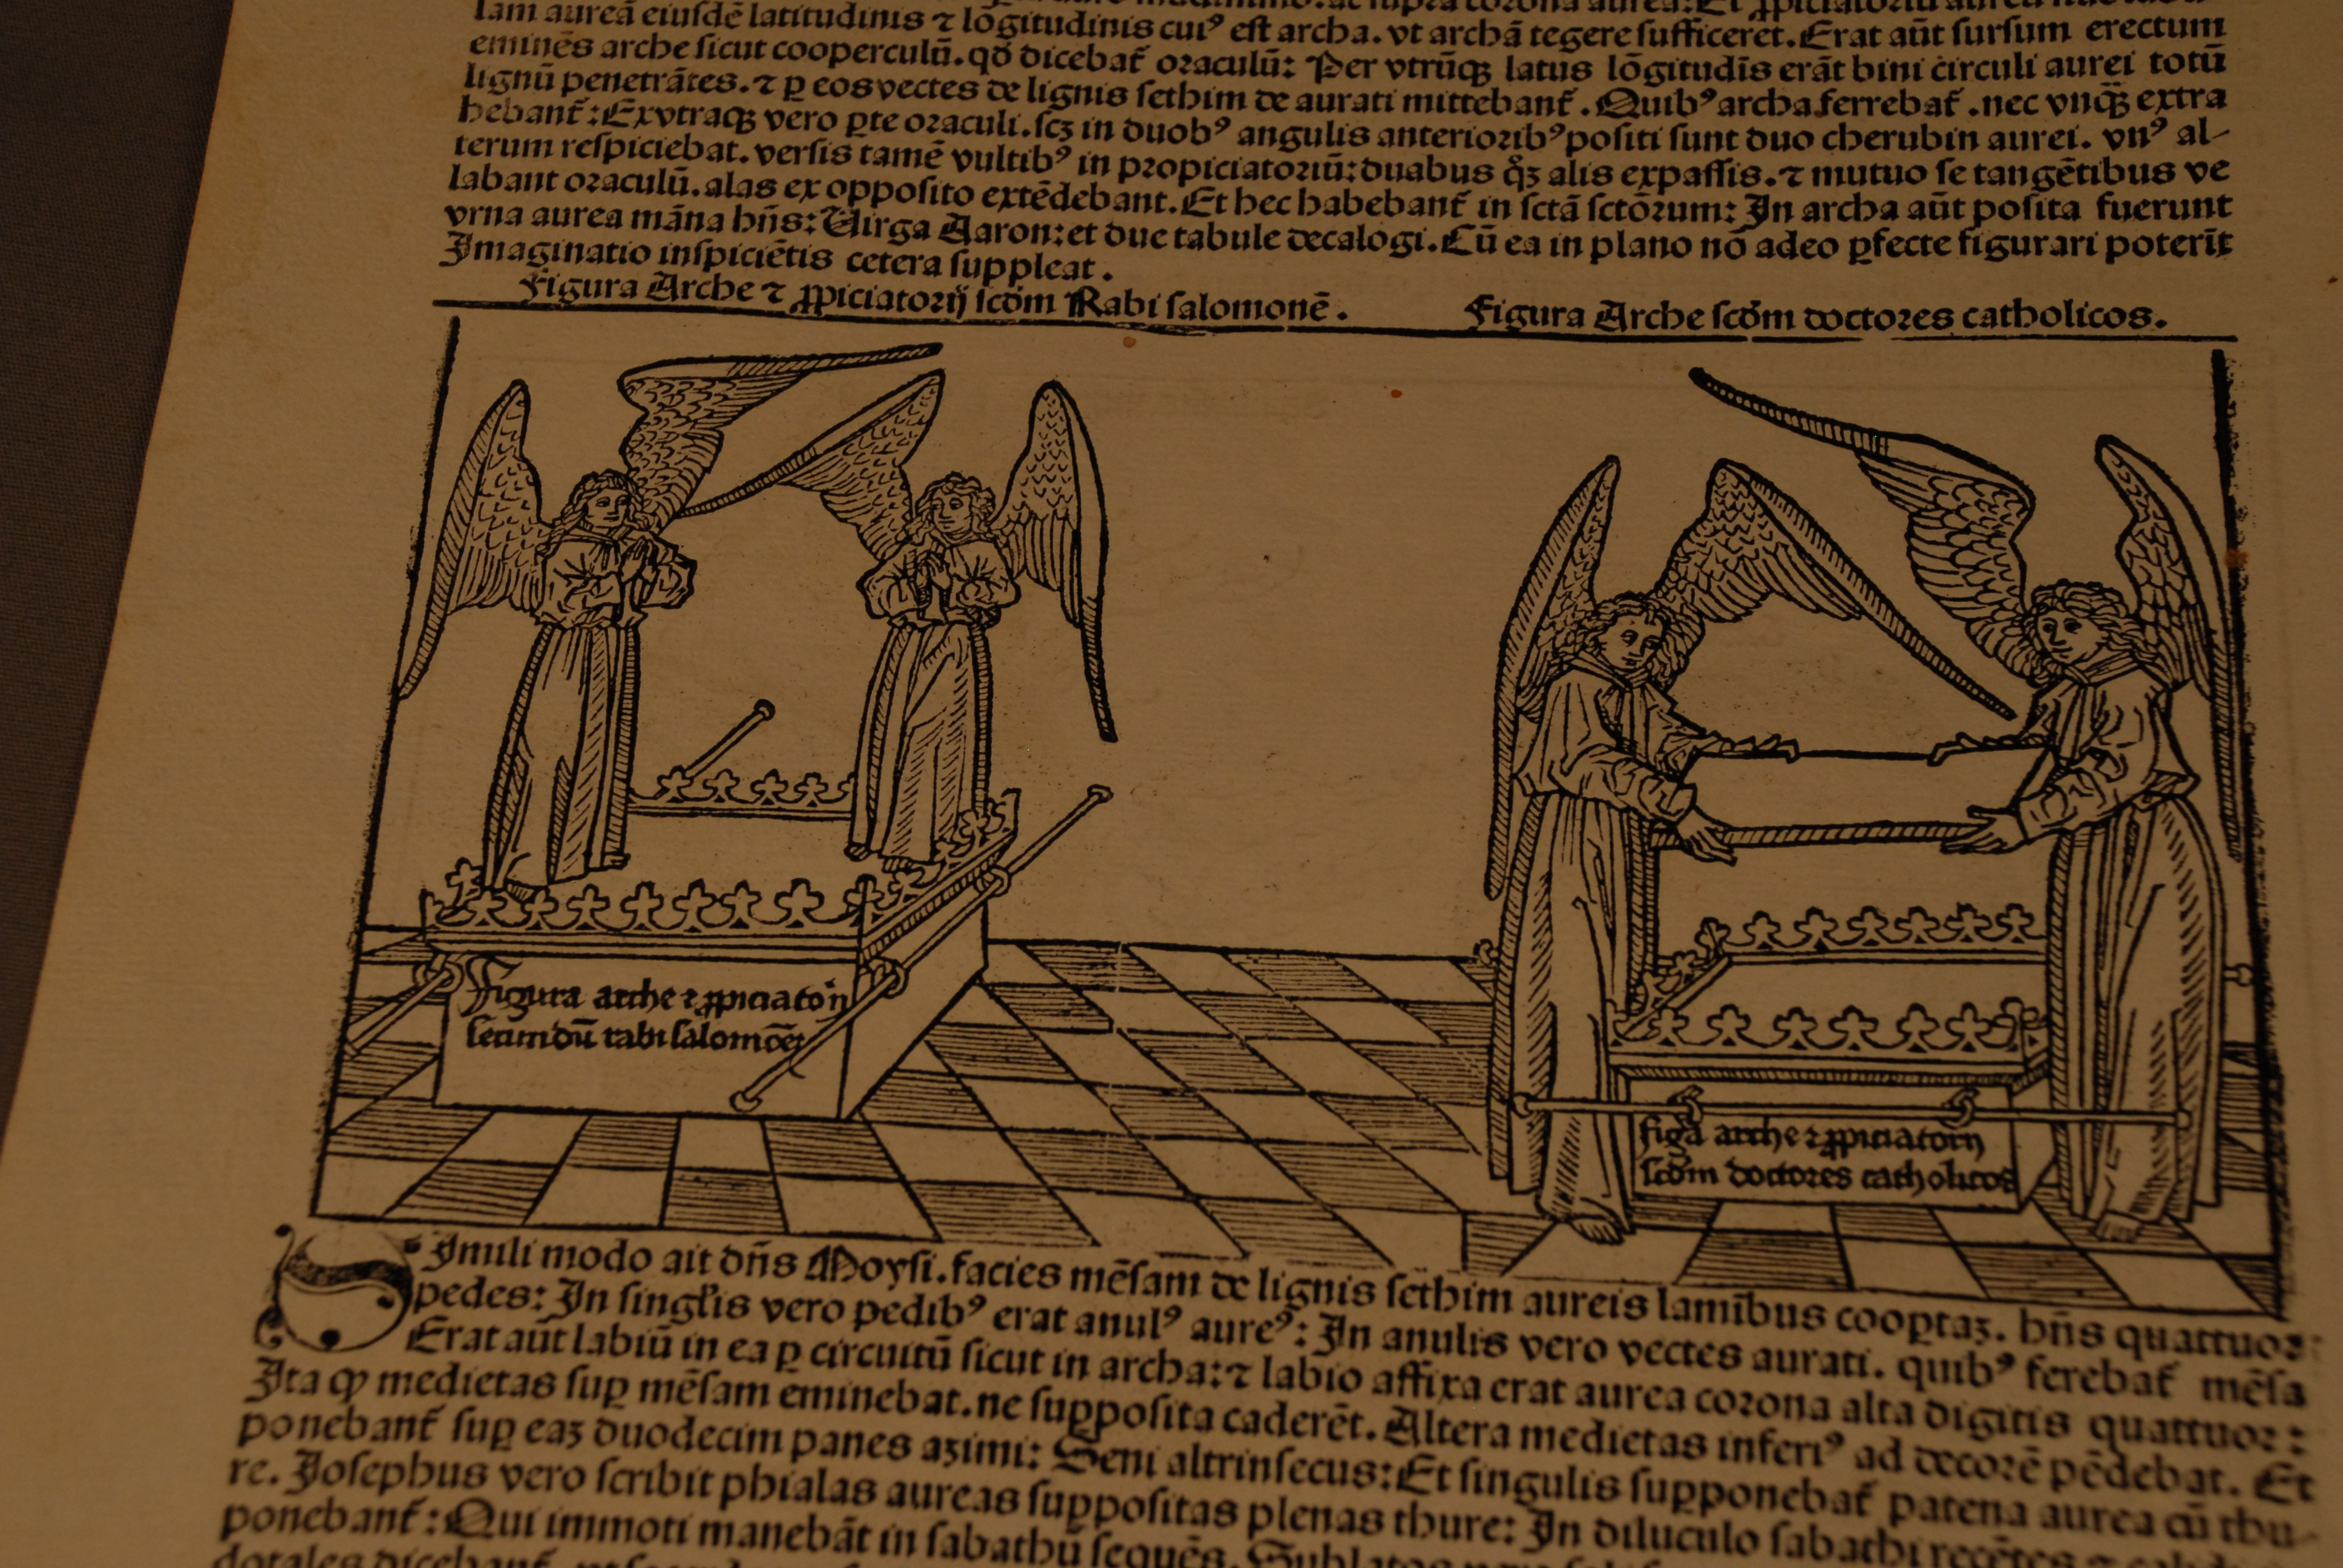 lam aureā eiusdē latitudinis ⁊ lōgitudinis cuiꝰ est archa. vt archā tegere sufficeret. Erat aūt sursum erectum
eminēs arche sicut cooperculū. qđ dicebat᷑ oraculū: Per vtrūqꝫ latus lōgitudīs erāt bini circuli aurei totū
lignū penetrātes. ⁊ ꝑ eos vectes de lignis sethim de aurati mittebant᷑. Quibꝰ archa ferrebat᷑. nec vnqꝫ extra
hebant᷑: Ex vtraqꝫ vero ꝑte oraculi. scꝫ in duobꝰ angulis anterioribꝰ positi sunt duo cherubin aurei. vnꝰ al-
terum respiciebat. versis tamē vultibꝰ in propiciatoriū: duabus qꝫ alis expassis. ⁊ mutuo se tangētibus ve
labant oraculū. alas ex opposito extēdebant. Et hec habebant᷑ in sctā sctōrum: In archa aūt posita fuerunt
vrna aurea māna hn̄s: Uirga Aaron: et due tabule decalogi. Cū ea in plano nō adeo ꝑfecte figurari poterīt
Imaginatio inspiciētis cetera suppleat.
Figura Arche ⁊ ꝓpiciatorij scđm Rabi salomonē.
Figura Arche scđm doctores catholicos.
Figura arche ⁊ ꝓpiciatorii
secundū rabi salomōeꝫ
figā arche ⁊ ꝓpiciatorii
scđm doctores catholicos
SImili modo ait dn̄s Moysi. facies mēsam de lignis sethim aureis lamībus cooꝑtaꝫ. hn̄s quattuor
pedes: In singl̄is vero pedibꝰ erat anulꝰ aureꝰ: In anulis vero vectes aurati. quibꝰ ferebat᷑ mēsa
Erat aūt labiū in ea ꝑ circuitū sicut in archa: ⁊ labio affixa erat aurea corona alta digitis quattuor:
Ita ꝙ medietas suꝑ mēsam eminebat. ne supposita caderēt. Altera medietas inferiꝰ ad decorē pēdebat. Et
ponebant᷑ suꝑ eaꝫ duodecim panes azimi: Seni altrinsecus: Et singulis supponebat᷑ patena aurea cū thu
re. Josephus vero scribit phialas aureas suppositas plenas thure: In diluculo sabathi recētes
ponebant᷑: Qui immoti manebāt in sabathū sequēs.